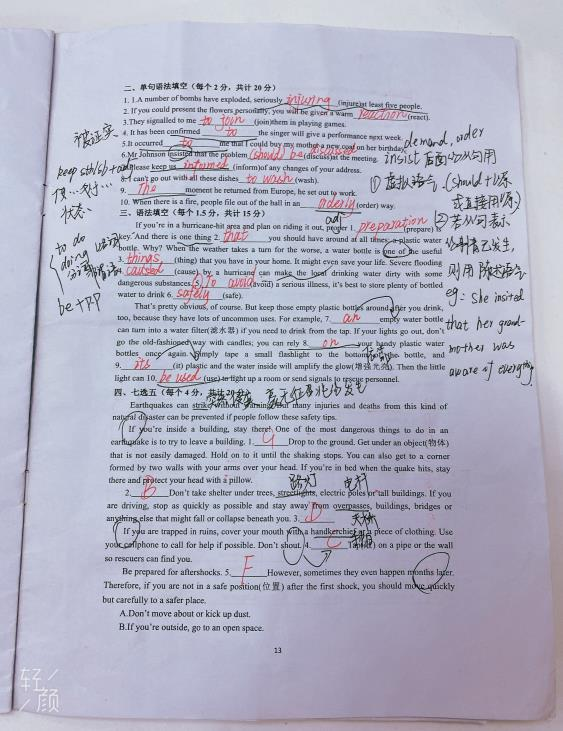 二、单句语法填空（每个2分，共计20分）
1. 1.A number of bombs have exploded, seriously injuring (injure)at least five people.
2. If you could present the flowers personally, you will be given a warm reaction (react).
3.They signalled to me to join (join)them in playing games.
4. It has been confirmed to the singer will give a performance next week.
5.It occurred to me that I could buy my mother a new coat on her birthday.
6.Mr Johnson insisted that the problem (should) be discussed (discuss)at the meeting.
7.Please keep us informed (inform)of any changes of your address.
8. I can't go out with all these dishes to wash (wash).
9. The moment he returned from Europe, he set out to work.
10. When there is a fire, people file out of the hall in an orderly (order) way.
adj
三、语法填空（每个1.5分，共计15分）
If you're in a hurricane-hit area and plan on riding it out, proper 1. preparation (prepare) is
key. And there is one thing 2. that you should have around at all times: a plastic water
bottle. Why? When the weather takes a turn for the worse, a water bottle is one of the useful
3. things (thing) that you have in your home. It might even save your life. Severe flooding
4. caused (cause) by a hurricane can make the local drinking water dirty with some
dangerous substances. 5. To avoid (avoid) a serious illness, it's best to store plenty of bottled
water to drink 6. safely (safe).
That's pretty obvious, of course. But keep those empty plastic bottles around after you drink,
too, because they have lots of uncommon uses. For example, 7. an empty water bottle
can turn into a water filter(滤水器) if you need to drink from the tap. If your lights go out, don't
go the old-fashioned way with candles; you can rely 8. on your handy plastic water
bottles once again. Simply tape a small flashlight to the bottom of the bottle, and
9. its (it) plastic and the water inside will amplify the glow(增强光亮). Then the little
light can 10. be used (use) to light up a room or send signals to rescue personnel.
四、七选五（每个4分，共计20分）
Earthquakes can strike without warning. But many injuries and deaths from this kind of
natural disaster can be prevented if people follow these safety tips.
If you're inside a building, stay there! One of the most dangerous things to do in an
earthquake is to try to leave a building. 1. G Drop to the ground. Get under an object(物体)
that is not easily damaged. Hold on to it until the shaking stops. You can also get to a corner
formed by two walls with your arms over your head. If you're in bed when the quake hits, stay
there and protect your head with a pillow.
路灯 电杆
2. B Don't take shelter under trees, streetlights, electric poles or tall buildings. If you
are driving, stop as quickly as possible and stay away from overpasses, buildings, bridges or
anything else that might fall or collapse beneath you. 3. D
天桥
If you are trapped in ruins, cover your mouth with a handkerchief or a piece of clothing. Use
your cellphone to call for help if possible. Don't shout. 4. C on a pipe or the wall
so rescuers can find you.
Be prepared for aftershocks. 5. F However, sometimes they even happen months later.
Therefore, if you are not in a safe position(位置) after the first shock, you should move quickly
but carefully to a safer place.
A.Don't move about or kick up dust.
B.If you're outside, go to an open space.
13
被证实
keep sth/sb + adj
使…处于…
状态
to do
doing
be + pp
demand, order
insist 后面的从句用
① 虚拟语气 (should+V原
或直接用V原)
② 若从句表示
则用陈述语气
eg: She insited
that her grand-
mother was
aware of everything
轻
颜